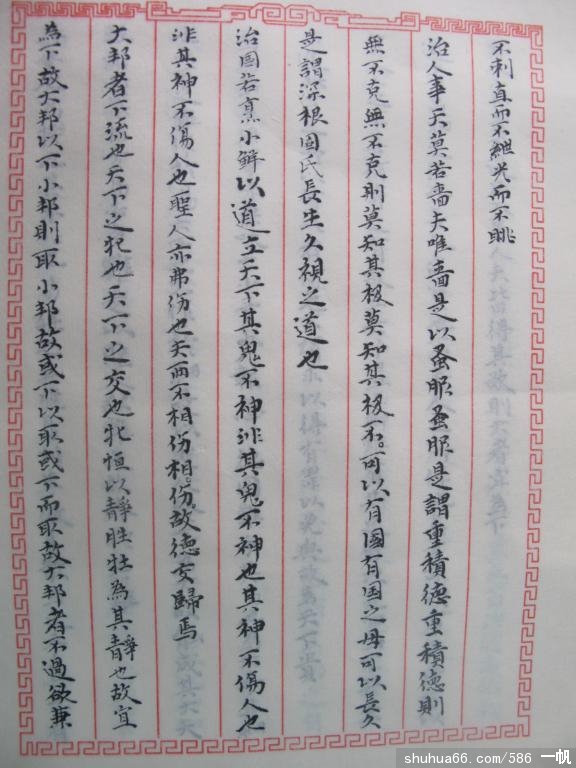 不刺直而不紲光而不眺
治人事天莫若嗇夫唯嗇是以蚤服蚤服是謂重積德重積德則
無不克無不克則莫知其极莫知其极不。可以有國有国之母可以長久
是謂深根固氐長生久視之道也
治國若烹小鲜以道立天下其鬼不神非其鬼不神也其神不傷人也
非其神不傷人也聖人亦弗伤也夫两不相伤相。伤。故德交歸焉
大邦者下流也天下之牝也天下之交也牝恒以靜胜牡為其靜也故宜
為下故大邦以下小邦則取小邦故或下以取或下而取故大邦者不過欲兼
shuhua66.com/586 一帆